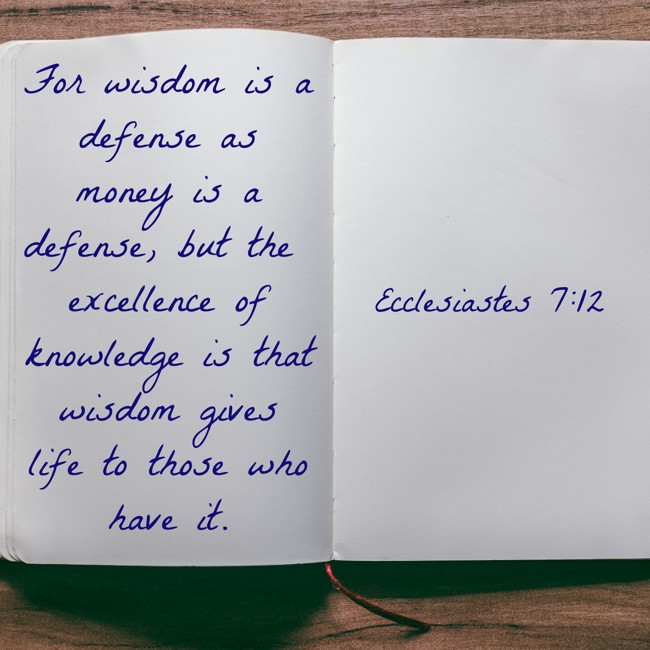 For wisdom is a
defense as
money is a
defense, but the
excellence of
knowledge is that
wisdom gives
life to those who
have it.
Ecclesiastes 7:12